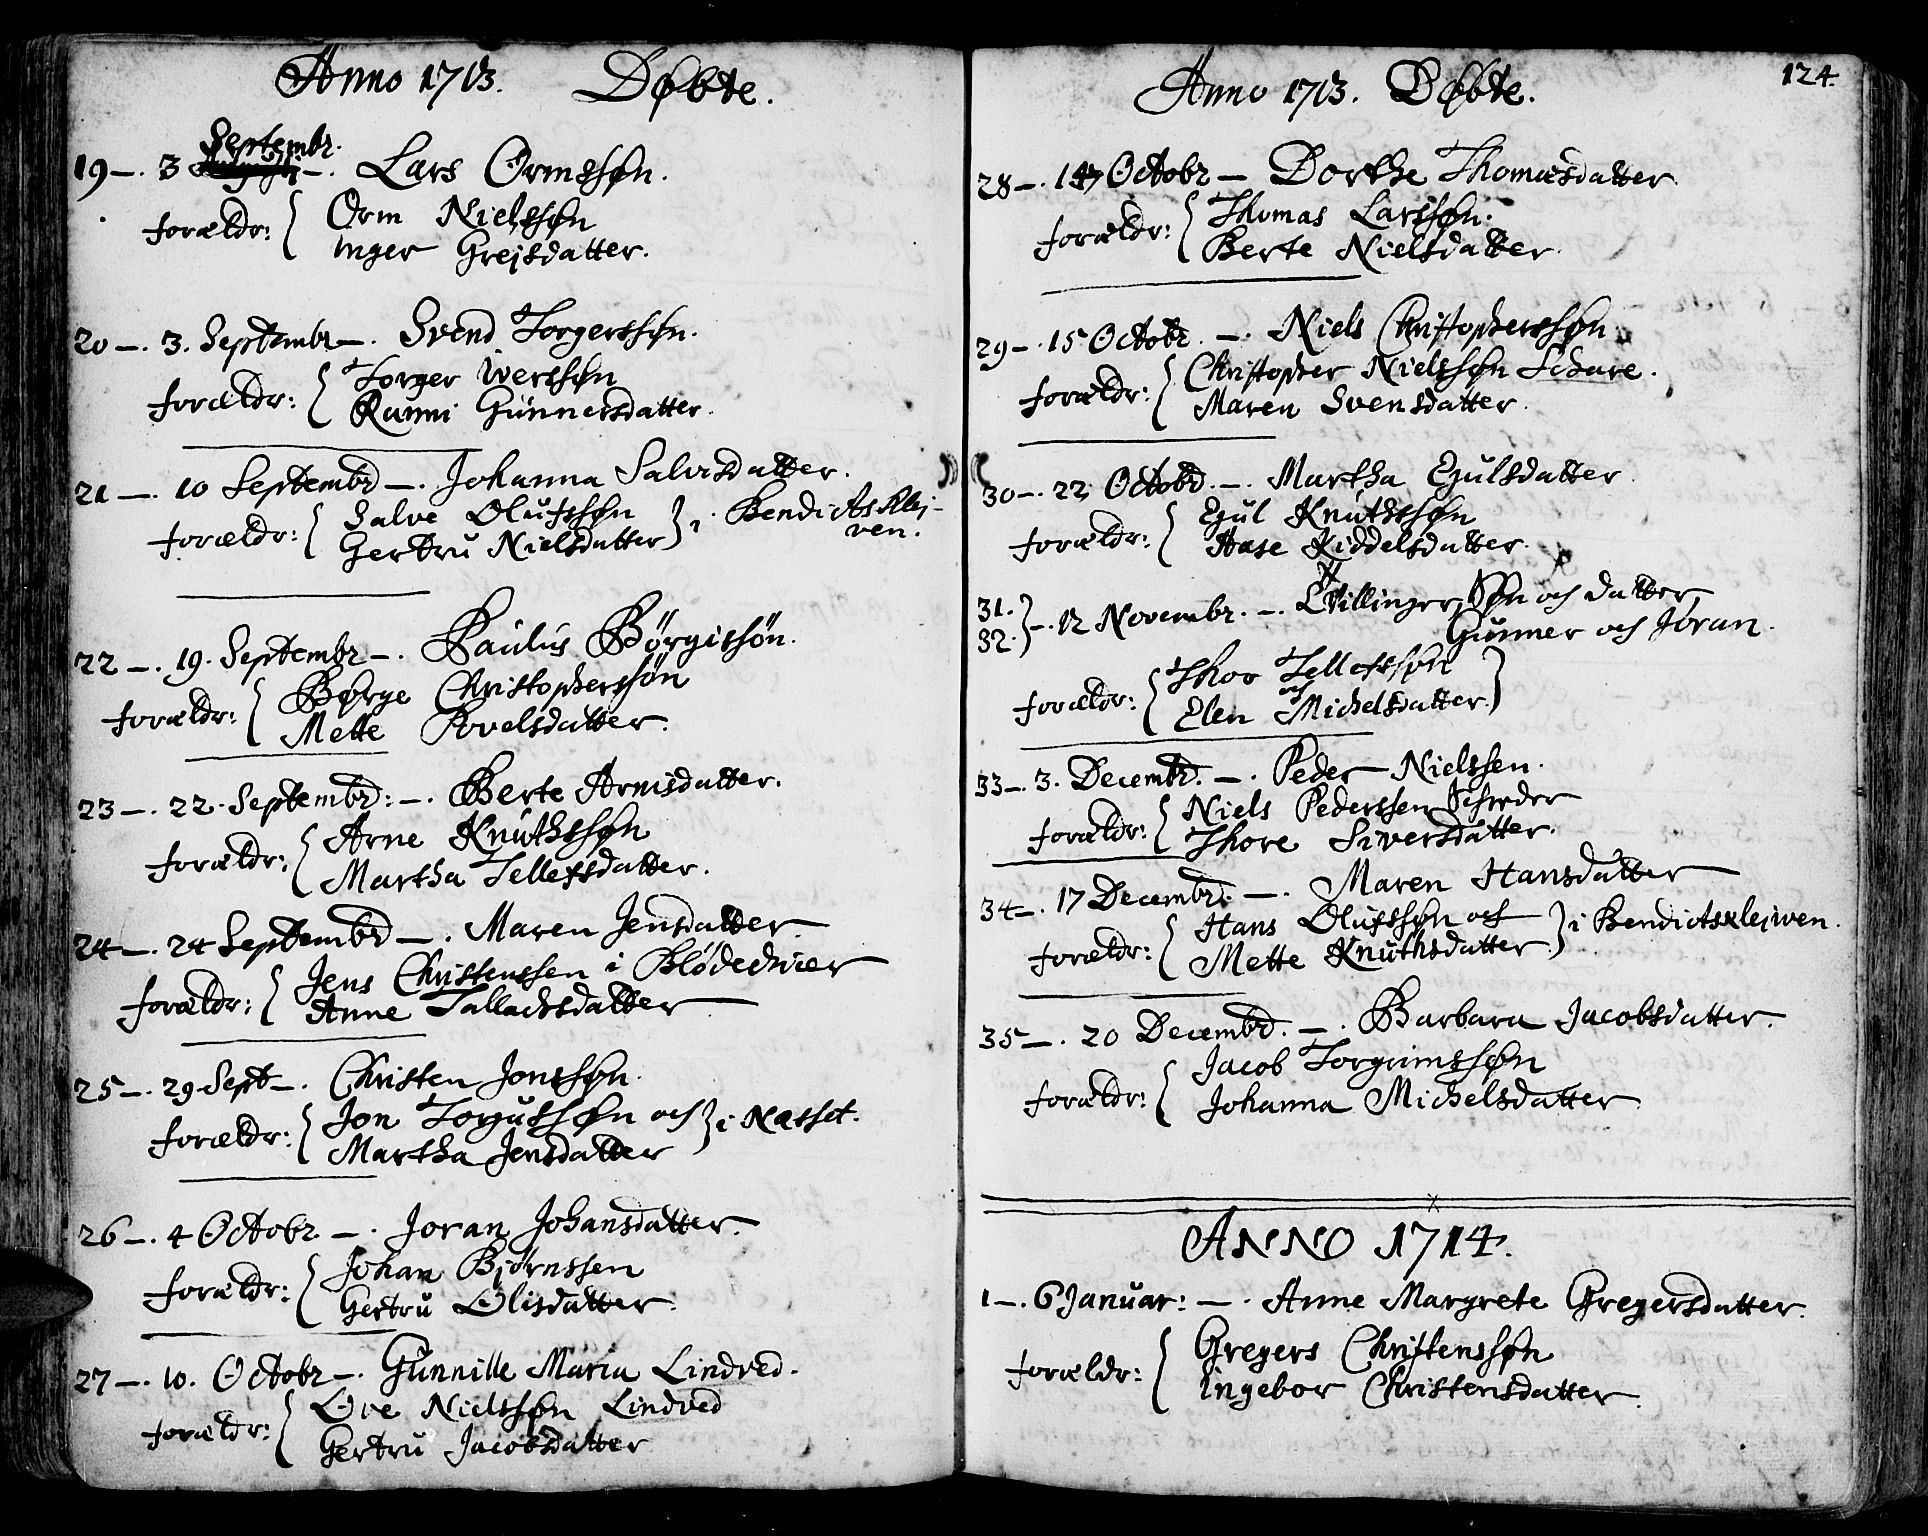 Anno 1713. Døbte.
Septembr.
19 –. 3 –. Lars Ormssøn.
forældr: { Orm Nielssøn
Inger Grejsdatter.
20 –. 3. Septembr –. Svend Torgerssøn.
forældr: { Torger Iverssøn
Runni Gunnersdatter.
21 –. 10 Septembr –. Johanna Salvisdatter.
forældr: { Salve Olufssøn } i Bendictsklej-
Gertru Nielsdatter ven.
22 –. 19. Septembr –. Paulus Börgissön.
forældr: { Børge Christopherssön
Mette Povelsdatter.
23 –. 22. Septembr: –. Berte Arnisdatter.
forældr: { Arne Knuthssøn
Martha Tellefsdatter.
24 –. 24 Septembr –. Maren Jensdatter
forældr: { Jens Christenssen i
Anne Tallachsdatter
25 –. 29 Sept –. Christen Jonssøn.
forældr: { Jon Torgufssøn och } i Næsset.
Martha Jensdatter
26 –. 4 Octobr –. Joran Johansdatter.
forældr: { Johan Bjørnssen
Gertru Olisdatter.
27 –. 10. Octobr –. Gunnille Maria Lindved.
forældr: { Ove Nielssøn Lindved
Gertru Jacobsdatter
Anno 1713. Døbte. 124.
28 –. Octobr – Dorthe Thomæsdatter
forældr: { Thomas Larssøn.
Berte Nielsdatter.
29 –. 15 Octobr. –. Niels Christopherssøn
forældr: { Christopher Nielssøn
Maren Svensdatter.
30 –. 22 Octobr. –. Martha Egulsdatter.
forældr: { Egul Knuthssøn
Aase Kiddelsdatter.
31. } –. 12 Novembr. –. Tvillinger, Søn och datter
32. Gunner och Joran.
forældr: { Thor Tellefssøn }
och
Elen Michelsdatter.
33 –. 3. Decembr. –. Peder Nielssen.
forældr: { Niels Pederssen Schreder
Thore Siversdatter.
34 –. 17 Decembr. –. Maren Hansdatter
forældr: { Hans Olufssøn och } i Bendictsklejven.
Mette Knuthsdatter
35 –. 20 Decembr. –. Barbara Jacobsdatter.
forældr: { Jacob Torgrimssøn
Johanna Michelsdatter
ANNO 1714.
1 –. 6 Januar: –. Anne Margrete Gregersdatter.
forældr: { Gregers Christenssøn
Ingebor Christensdatter.